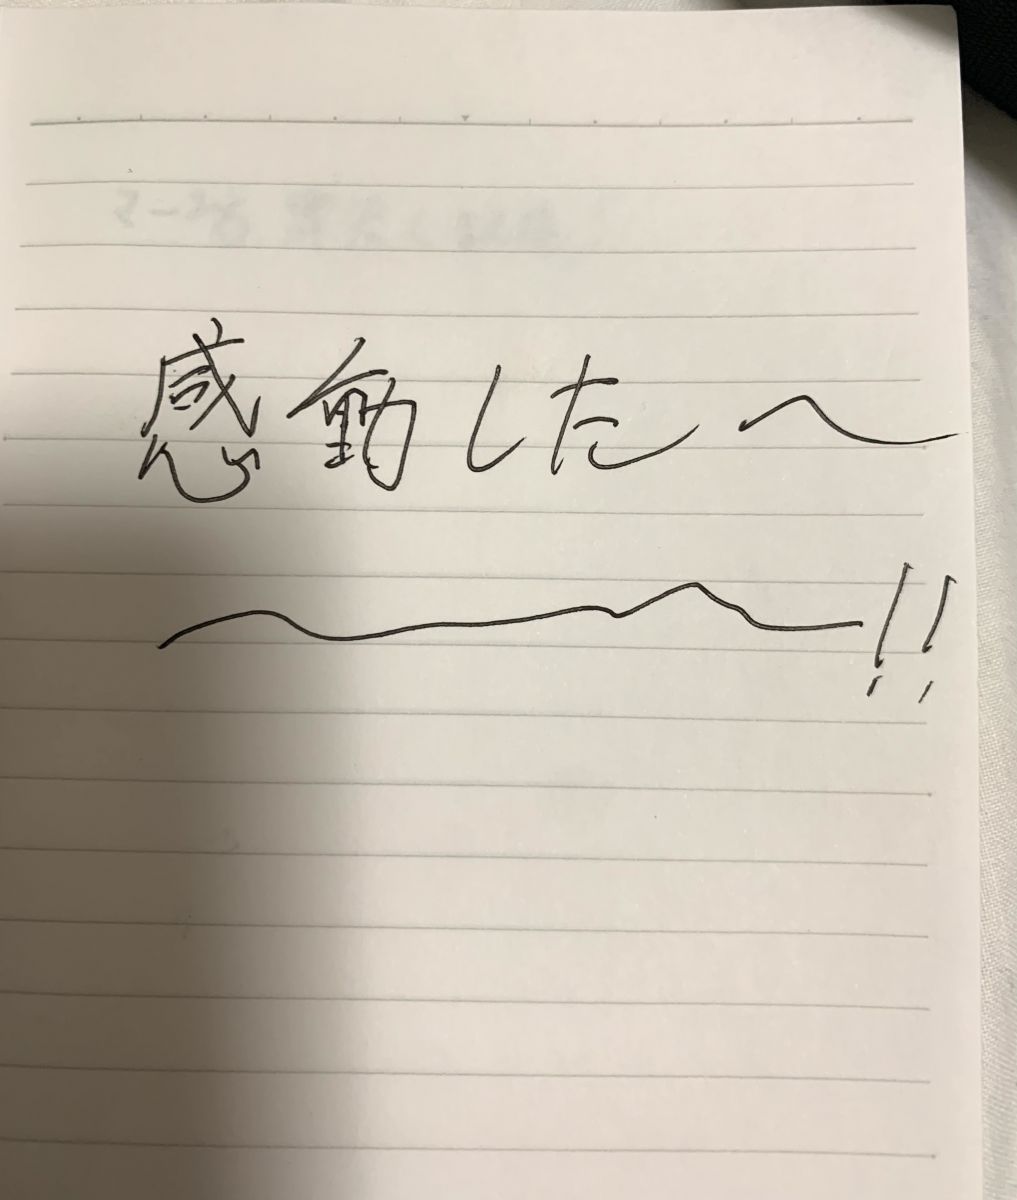 感動した〜
〜〜!!